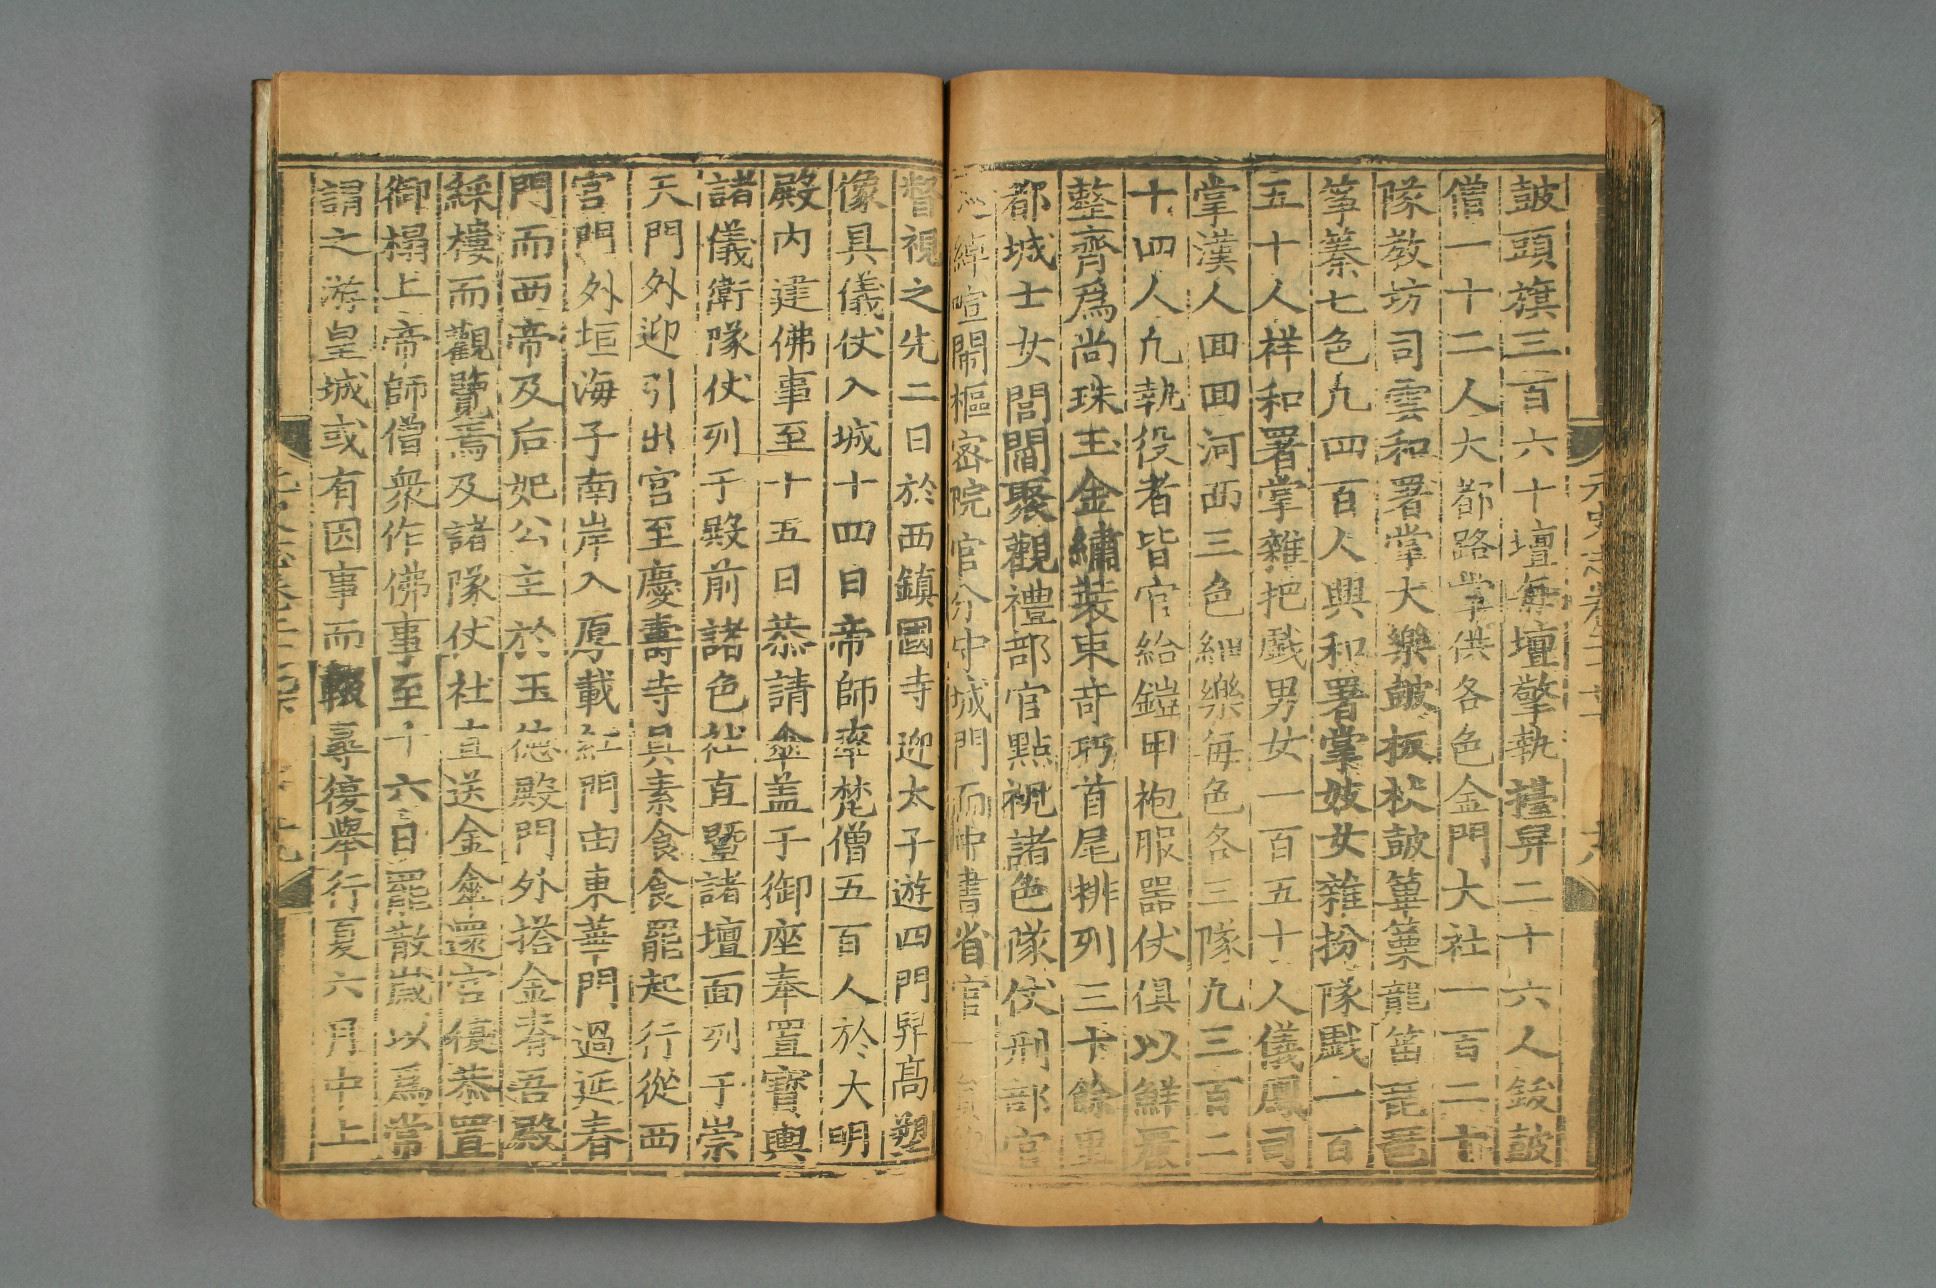 鼓頭旗三百六十壇每壇擎執擡舁二十六人鈸鼓
僧一十二人大都路掌供各色金門大社一百二十
隊教坊司雲和署掌大樂鼓板杖鼓篳篥龍笛琵琶
箏𥱧七色凡四百人興和署掌妓女雜扮隊戲一百
五十人祥和署掌雜把戲男女一百五十人儀鳳司
掌漢人回回河西三色細樂每色各三隊凡三百二
十四人凡執役者皆官給鎧甲袍服器仗俱以鮮麗
整齊爲尚珠玉金繡裝束奇巧首尾排列三十餘里
都城士女閭閻聚觀禮部官點視諸色隊仗刑部官
巡綽喧鬧樞密院官分守城門而中書省官一員
督視之先二日於西鎮國寺迎太子遊四門舁高塑
像具儀仗入城十四日帝師率梵僧五百人於大明
殿內建佛事至十五日恭請傘蓋于御座奉置寶輿
諸儀衛隊仗列于殿前諸色社直暨諸壇面列于崇
天門外迎引出宮至慶壽寺具素食食罷起行從西
宮門外垣海子南岸入厚載紅門由東華門過延春
門而西帝及后妃公主於玉德殿門外搭金脊吾殿
綵樓而觀覽焉及諸隊仗社直送金傘還宮復恭置
御榻上帝師僧衆作佛事至十六日罷散歲以爲常
謂之游皇城或有因事而輟尋復舉行夏六月中上
元史志卷二十七 十九